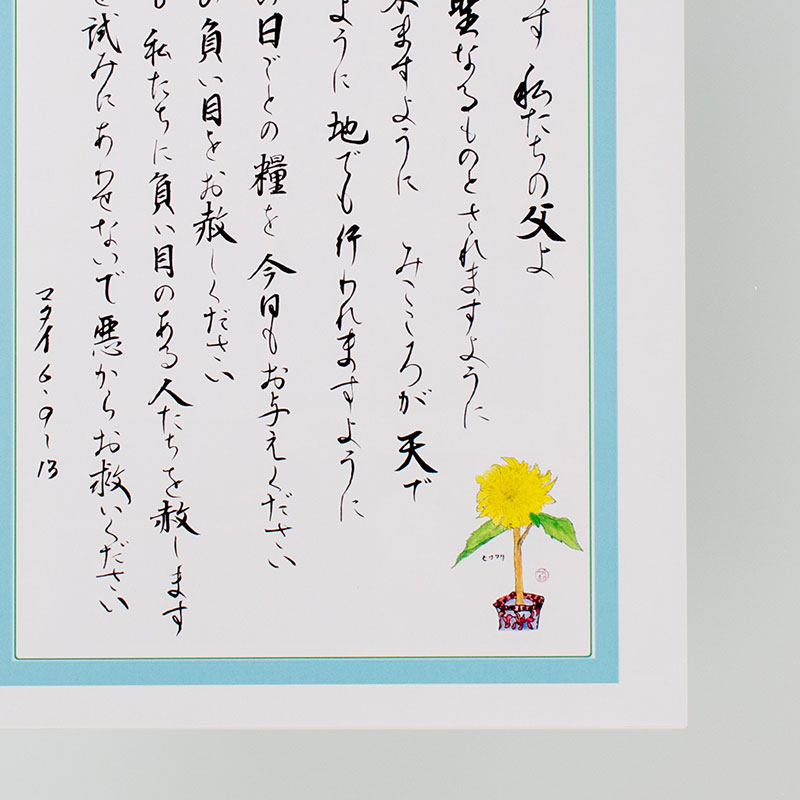 す 私たちの父よ
聖なるものとされますように
来ますように みこころが 天で
ように 地でも 行われますように
の日ごとの糧を 今日もお与えください
の負い目をお赦しください
も 私たちに負い目のある人たちを赦します
を試みにあわせないで 悪からお救いください
マタイ 6・9〜13
ヒマワリ